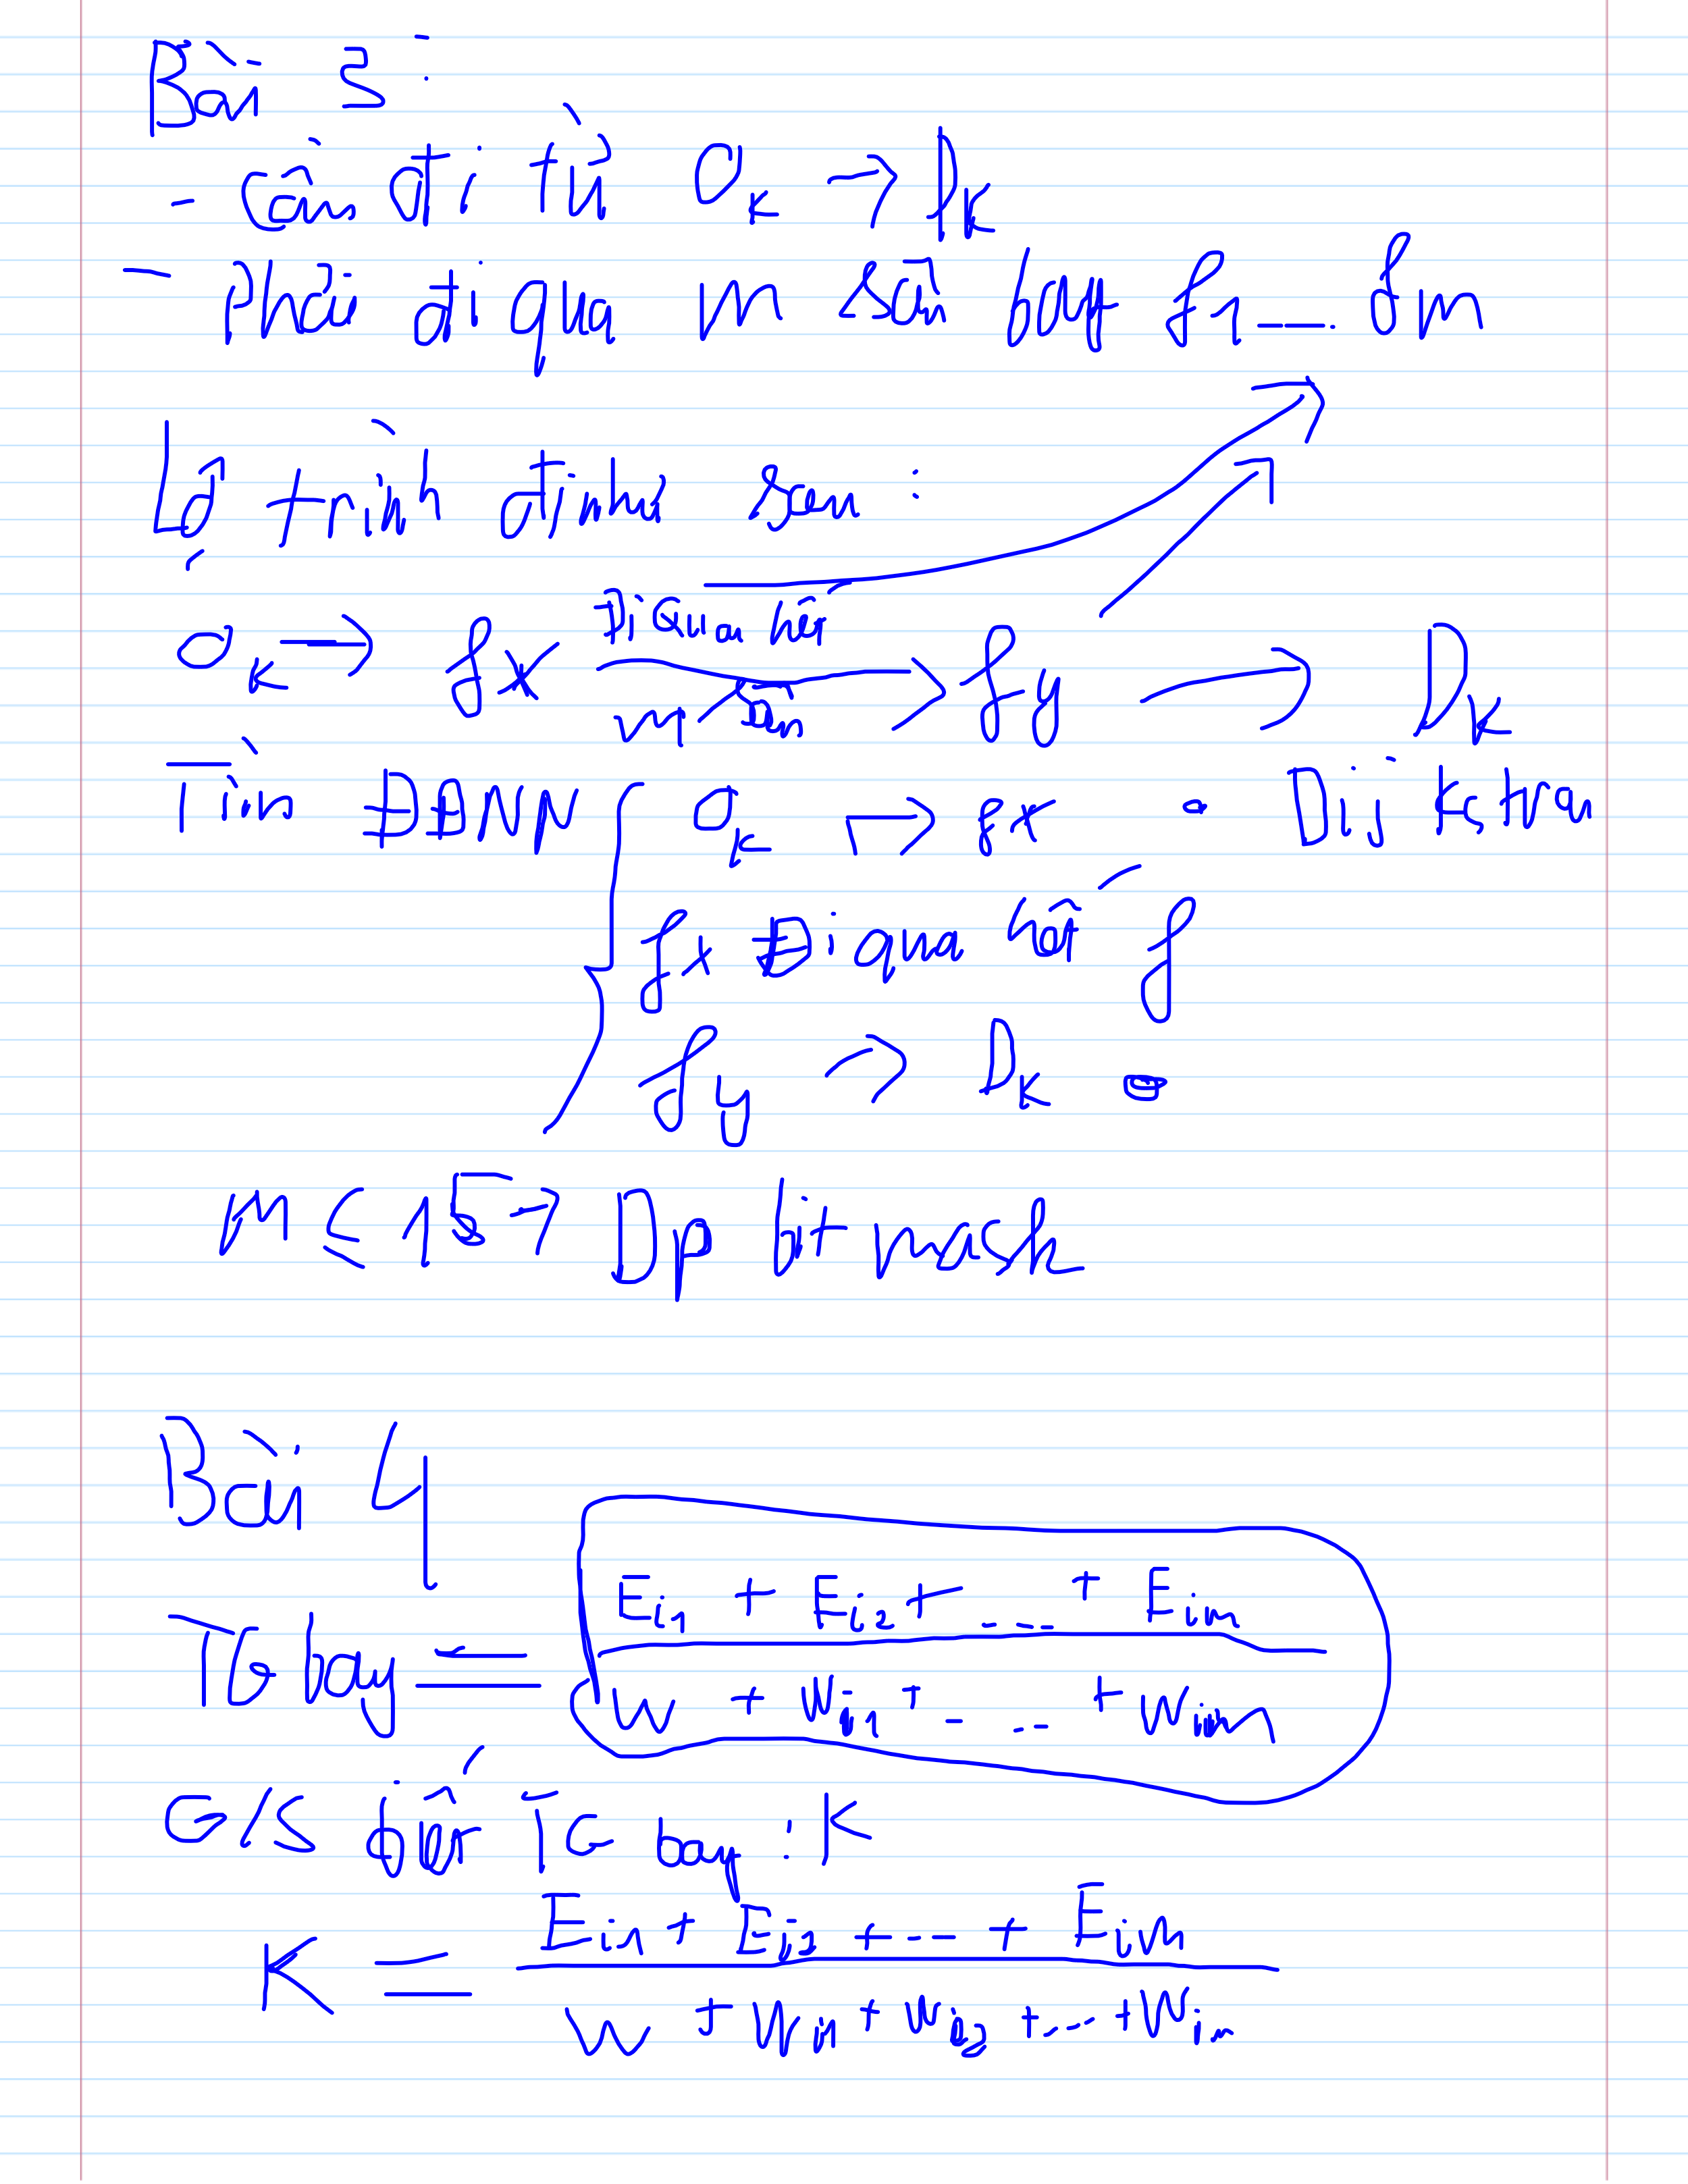 Bài 3:
- Cần đi từ O_k → D_k
- Phải đi qua m sân bay f_1 ---. f_m
Lộ trình đỉnh sau:
O_k → f_x Đi qua hết m sân → f_y → D_k
Tìm ĐĐNN { O_k → f_x - Dijkstra
f_x Đi qua hết f
f_y → D_k
m ≤ 15 → Dp bitmask
Bài 4
TG bay = (E_i1 + E_i2 + --- + E_im) / (W + W_i1 + --- + W_im)
G/S bởi TG bay : K
K = (E_i1 + E_i2 + --- + E_im) / (W + W_i1 + W_i2 + ... + W_im)